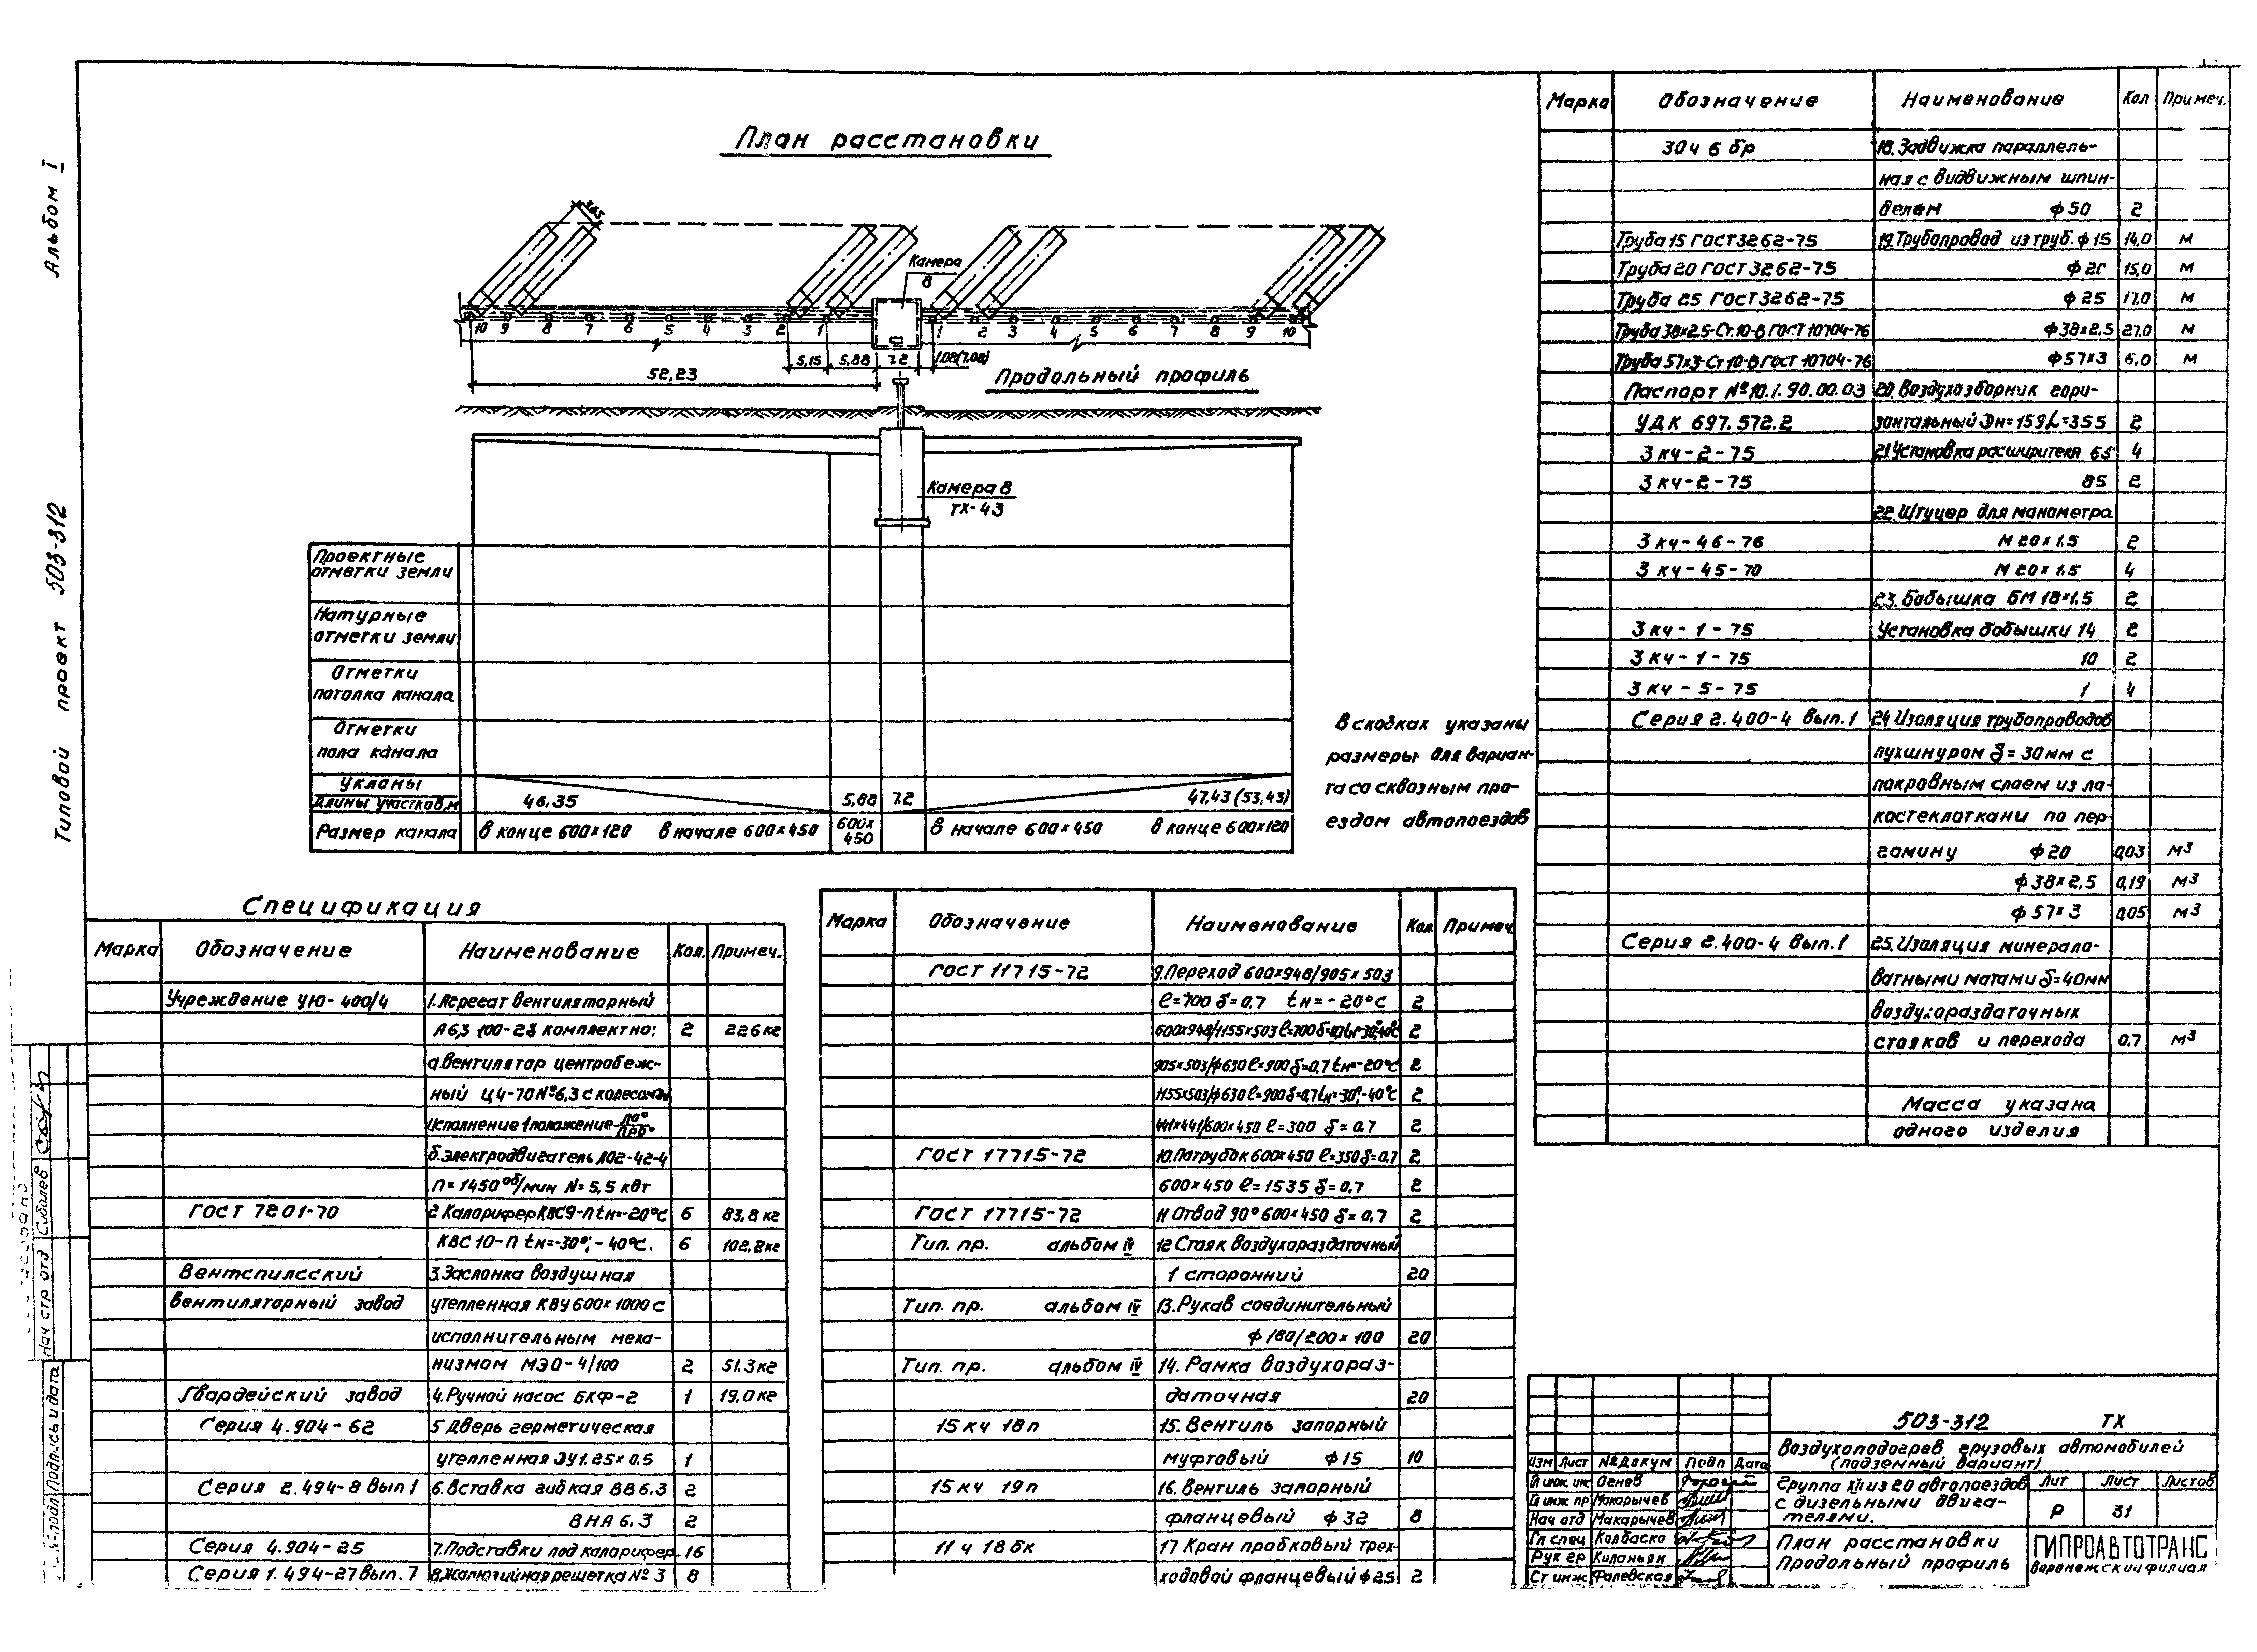 Альбом I
Типовой проект 503-312
План расстановки
3.65
Камера
8
10 9 8 7 6 5 4 3 2 1
1 2 3 4 5 6 7 8 9 10
5,15 5,88 7.2 1.08(7,08)
52,23
Продольный профиль
Камера 8
ТХ-43
Проектные
отметки земли
Натурные
отметки земли
Отметки
потолка канала
Отметки
пола канала
Уклоны
Длины участков,м 46.35 5,88 7.2 47,43 (53,43)
Размер канала в конце 600×120 в начале 600×450 600× 450 в начале 600×450 в конце 600×120
В скобках указаны
размеры для вариан-
та со сквозным про-
ездом автопоездов
Спецификация
Марка Обозначение Наименование Кол. Примеч.
Учреждение УЮ-400/4 1.Агрегат вентиляторный
А6,3 100-2б комплектно: 2 226 кг
а.вентилятор центробеж-
ный Ц4-70 №6,3 с колесом
исполнение 1 положение Л0° ПР0°
б.электродвигатель АО2-42-4
n=1450 об/мин N=5,5 квт
ГОСТ 7201-70 2 Калорифер КВС9-п tн=-20°С 6 83,8 кг
КВС 10-п tн=-30°; -40°С. 6 102,2кг
Вентспилсский 3.Заслонка воздушная
вентиляторный завод утепленная КВУ 600×1000 с
исполнительным меха-
низмом МЭО-4/100 2 51.3кг
Гвардейский завод 4.Ручной насос БКФ-2 1 19,0 кг
Серия 4.904-62 5 Дверь герметическая
утепленная ДУ1.25×0,5 1
Серия 2.494-8 вып 1 6.Вставка гибкая ВВ6.3 2
ВНА 6.3 2
Серия 4.904-25 7.Подставки под калорифер. 16
Серия 1.494-27 вып. 7 8.Жалюзийная решетка №3 8
Марка Обозначение Наименование Кол. Примеч
ГОСТ 11715-72 9.Переход 600×948/905×503
ℓ=700 δ=0,7 tн=-20°С 2
600×948/1155×503 ℓ=700 δ=0,7 tн=-30;-40°С 2
905×503/ф630 ℓ=900 δ=0,7 tн=-20°С 2
1155×503/ф630 ℓ=900 δ=0,7 tн=-30°;-40°С 2
441×441/600×450 ℓ=300 δ=0.7 2
ГОСТ 17715-72 10.Патрубок 600×450 ℓ=350 δ=0.7 2
600×450 ℓ=1535 δ=0,7 2
ГОСТ 17715-72 11 Отвод 90° 600×450 δ=0,7 2
Тип. пр. альбом IV 12 Стояк воздухораздаточный
1 сторонний 20
Тип. пр. альбом IV 13.Рукав соединительный
ф180/200×100 20
Тип. пр. альбом IV 14. Рамка воздухораз-
даточная 20
15 кч 18 п 15. Вентиль запорный
муфтовый ф15 10
15 кч 19п 16. Вентиль запорный
фланцевый ф32 8
11 ч 18 бк 17 Кран пробковый трех-
ходовой фланцевый ф25 2
Марка Обозначение Наименование Кол Примеч.
30ч 6 бр 18.Задвижка параллель-
ная с видвижным шпин-
делем ф50 2
Труба 15 ГОСТ 3262-75 19.Трубопровод из труб. ф15 14,0 м
Труба 20 ГОСТ 3262-75 ф20 15,0 м
Труба 25 ГОСТ 3262-75 ф25 17,0 м
Труба 38×2.5-Ст.10-В ГОСТ 10704-76 ф38×2,5 27,0 м
Труба 57×3-Ст10-В ГОСТ 10704-76 ф57×3 6,0 м
Паспорт №10.1.90.00.03 20.Воздухозборник гори-
УДК 697.572.2 зонтальный Дн=159 L=355 2
3 кч-2-75 21 Установка расширителя 65 4
3 кч-2-75 85 2
22.Штуцер для манометра
3 кч-46-76 М 20×1.5 2
3 кч-45-70 М 20×1.5 4
23. Бобышка БМ 18×1.5 2
3 кч-1-75 Установка бобышки 14 2
3 кч-1-75 10 2
3 кч-5-75 1 4
Серия 2.400-4 вып.1 24 Изоляция трубопроводов
пухшнуром δ=30мм с
покровным слоем из ла-
костеклоткани по пер-
гамину ф20 0,03 м3
ф38×2,5 0,19 м3
ф57×3 0,05 м3
Серия 2.400-4 вып.1 25.Изоляция минерало-
ватными матами δ=40мм
воздухораздаточных
стояков и перехода 0,7 м3
Масса указана
одного изделия
503-312 ТХ
Воздухоподогрев грузовых автомобилей
(подземный вариант)
Изм Лист №Докум Подп Дата
Гл инж инс Огнев
Гл инж пр Макарычев
Нач отд Макарычев
Гл спец Колбаско
Рук гр Киланьян
Ст инж Фалевская
Группа XII из 20 автопоездов
с дизельными двига-
телями.
Лит Лист Листов
Р 31
План расстановки
Продольный профиль
ГИПРОАВТОТРАНС
Воронежский филиал
Нач стр отд Соболев
Подпись и дата